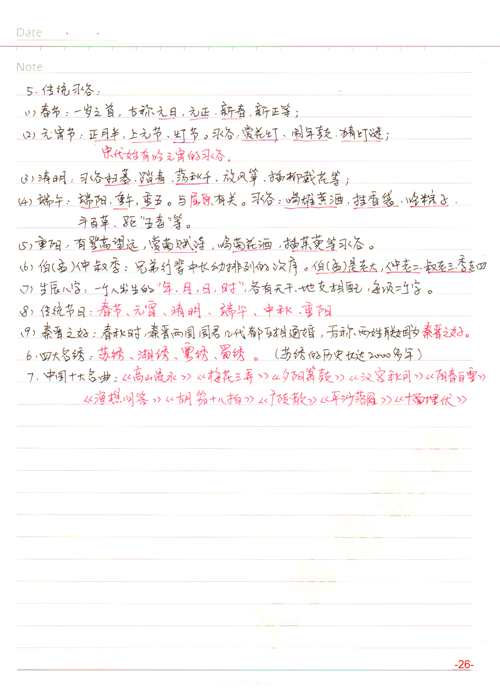 Date
Note
5. 传统习俗：
(1) 春节：一岁之首，古称元日、元正、新春、新正等；
(2) 元宵节：正月半、上元节、灯节。习俗：赏花灯、闹年鼓、猜灯谜；
宋代始有吃元宵的习俗。
(3) 清明，习俗扫墓、踏青、荡秋千、放风筝、插柳戴花等；
(4) 端午：端阳、重午、重五。与屈原有关。习俗：喝雄黄酒，挂香袋、吃粽子、
斗百草、驱“五毒”等。
(5) 重阳，有登高望远，赏菊赋诗，喝菊花酒，插茱萸等习俗。
(6) 伯(孟)仲叔季：兄弟行辈中长幼排列的次序。伯(孟)是老大，仲老二叔老三季老四
(7) 生辰八字：一个人出生的“年、月、日、时”，各有天干、地支相配，每项二个字。
(8) 传统节日：春节、元宵、清明、端午、中秋、重阳
(9) 秦晋之好：春秋时，秦晋两国国君几代都互相通婚，后称两姓联姻为秦晋之好。
6. 四大名绣：苏绣、湘绣、粤绣、蜀绣。（苏绣的历史长达2000多年）
7. 中国十大名曲：《高山流水》《梅花三弄》《夕阳箫鼓》《汉宫秋月》《阳春白雪》
《渔樵问答》《胡笳十八拍》《广陵散》《平沙落雁》《十面埋伏》
-26-